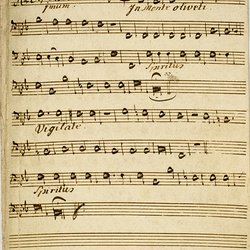 In Monte oliveti.
Spiritus
Vigilate.
Spiritus